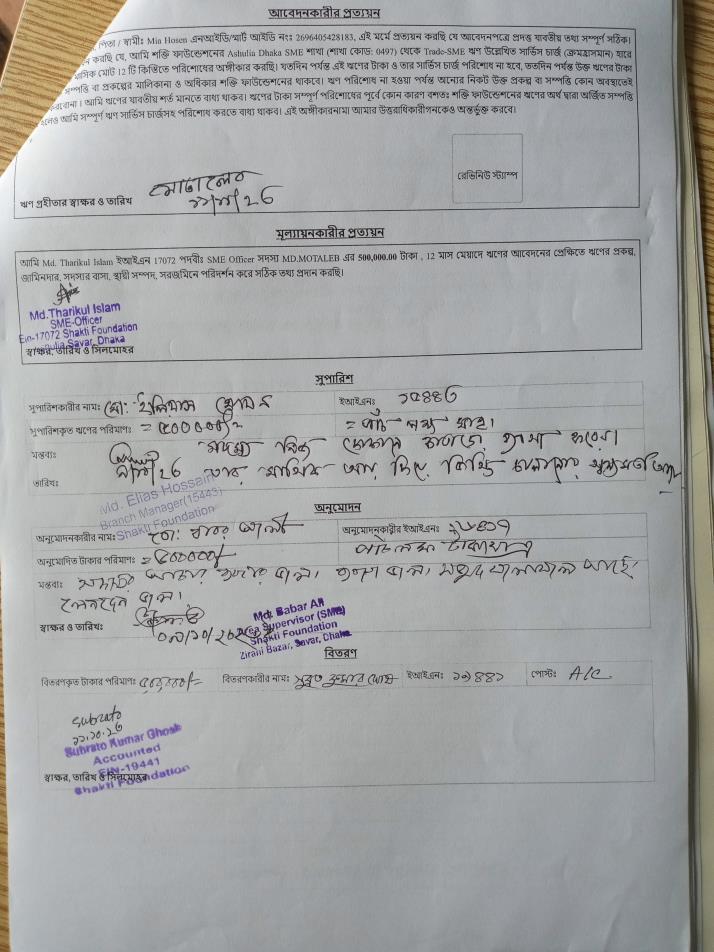 আবেদনকারীর প্রত্যয়ন
পিতা / স্বামীঃ Min Hosen এনআইডি/স্মার্ট আইডি নংঃ 2696405428183, এই মর্মে প্রত্যয়ন করছি যে আবেদনপত্রে প্রদত্ত যাবতীয় তথ্য সম্পূর্ণ সঠিক।
করছি যে, আমি শক্তি ফাউন্ডেশনের Ashulia Dhaka SME শাখা (শাখা কোড: 0497) থেকে Trade-SME ঋণ উল্লেখিত সার্ভিস চার্জ (ক্রমহ্রাসমান) হারে
মাসিক মোট 12 টি কিস্তিতে পরিশোধের অঙ্গীকার করছি। যতদিন পর্যন্ত এই ঋণের টাকা ও তার সার্ভিস চার্জ পরিশোধ না হবে, ততদিন পর্যন্ত উক্ত ঋণের টাকা
সম্পত্তি বা প্রকল্পের মালিকানা ও অধিকার শক্তি ফাউন্ডেশনের থাকবে। ঋণ পরিশোধ না হওয়া পর্যন্ত অন্যের নিকট উক্ত প্রকল্প বা সম্পত্তি কোন অবস্থাতেই
করবোনা । আমি ঋণের যাবতীয় শর্ত মানতে বাধ্য থাকব। ঋণের টাকা সম্পূর্ণ পরিশোধের পূর্বে কোন কারণ বশতঃ শক্তি ফাউন্ডেশনের ঋণের অর্থ দ্বারা অর্জিত সম্পত্তি
হলেও আমি সম্পূর্ণ ঋণ সার্ভিস চার্জসহ পরিশোধ করতে বাধ্য থাকব। এই অঙ্গীকারনামা আমার উত্তরাধিকারীগনকেও অন্তর্ভুক্ত করবে।
রেভিনিউ স্ট্যাম্প
ঋণ গ্রহীতার স্বাক্ষর ও তারিখ মোতালেব
মূল্যায়নকারীর প্রত্যয়ন
আমি Md. Tharikul Islam ইআইএন 17072 পদবীঃ SME Officer সদস্য MD.MOTALEB এর 500,000.00 টাকা , 12 মাস মেয়াদে ঋণের আবেদনের প্রেক্ষিতে ঋণের প্রকল্প,
জামিনদার, সদস্যের বাসা, স্থায়ী সম্পদ, সরজমিনে পরিদর্শন করে সঠিক তথ্য প্রদান করছি।
Md.Tharikul Islam
SME-Officer
Ein-17072 Shakti Foundation
Ashulia Savar, Dhaka
স্বাক্ষর, তারিখ ও সিলমোহর
সুপারিশ
সুপারিশকারীর নামঃ মো: ইলিয়াস হোসেন ইআইএনঃ ১৫৪৪৩
সুপারিশকৃত ঋণের পরিমাণঃ = ৫০০০০০/= = পাঁচ লক্ষ মাত্র।
মন্তব্যঃ সদস্য
তারিখঃ তার মাসিক আয় দিয়ে কিস্তি
Md. Elias Hossain
Branch Manager(15443)
Shakti Foundation
অনুমোদন
অনুমোদনকারীর নামঃ মো: বাবর আলী অনুমোদনকারীর ইআইএনঃ
অনুমোদিত টাকার পরিমাণঃ = ৫০০০০০/- পাঁচ লক্ষ টাকা মাত্র
মন্তব্যঃ
লেনদেন ভাল।
স্বাক্ষর ও তারিখঃ
Md. Babar Ali
Area Supervisor (SME)
Shakti Foundation
Zirani Bazar, Savar, Dhaka
বিতরণ
বিতরণকৃত টাকার পরিমাণঃ ৫০০০০০/= বিতরণকারীর নামঃ সুব্রত কুমার ঘোষ ইআইএনঃ ১৯৪৪১ পোস্টঃ A/C
Subrato
Subrato Kumar Ghosh
Accounted
EIN-19441
Shakti Foundation
স্বাক্ষর, তারিখ ও সিলমোহর